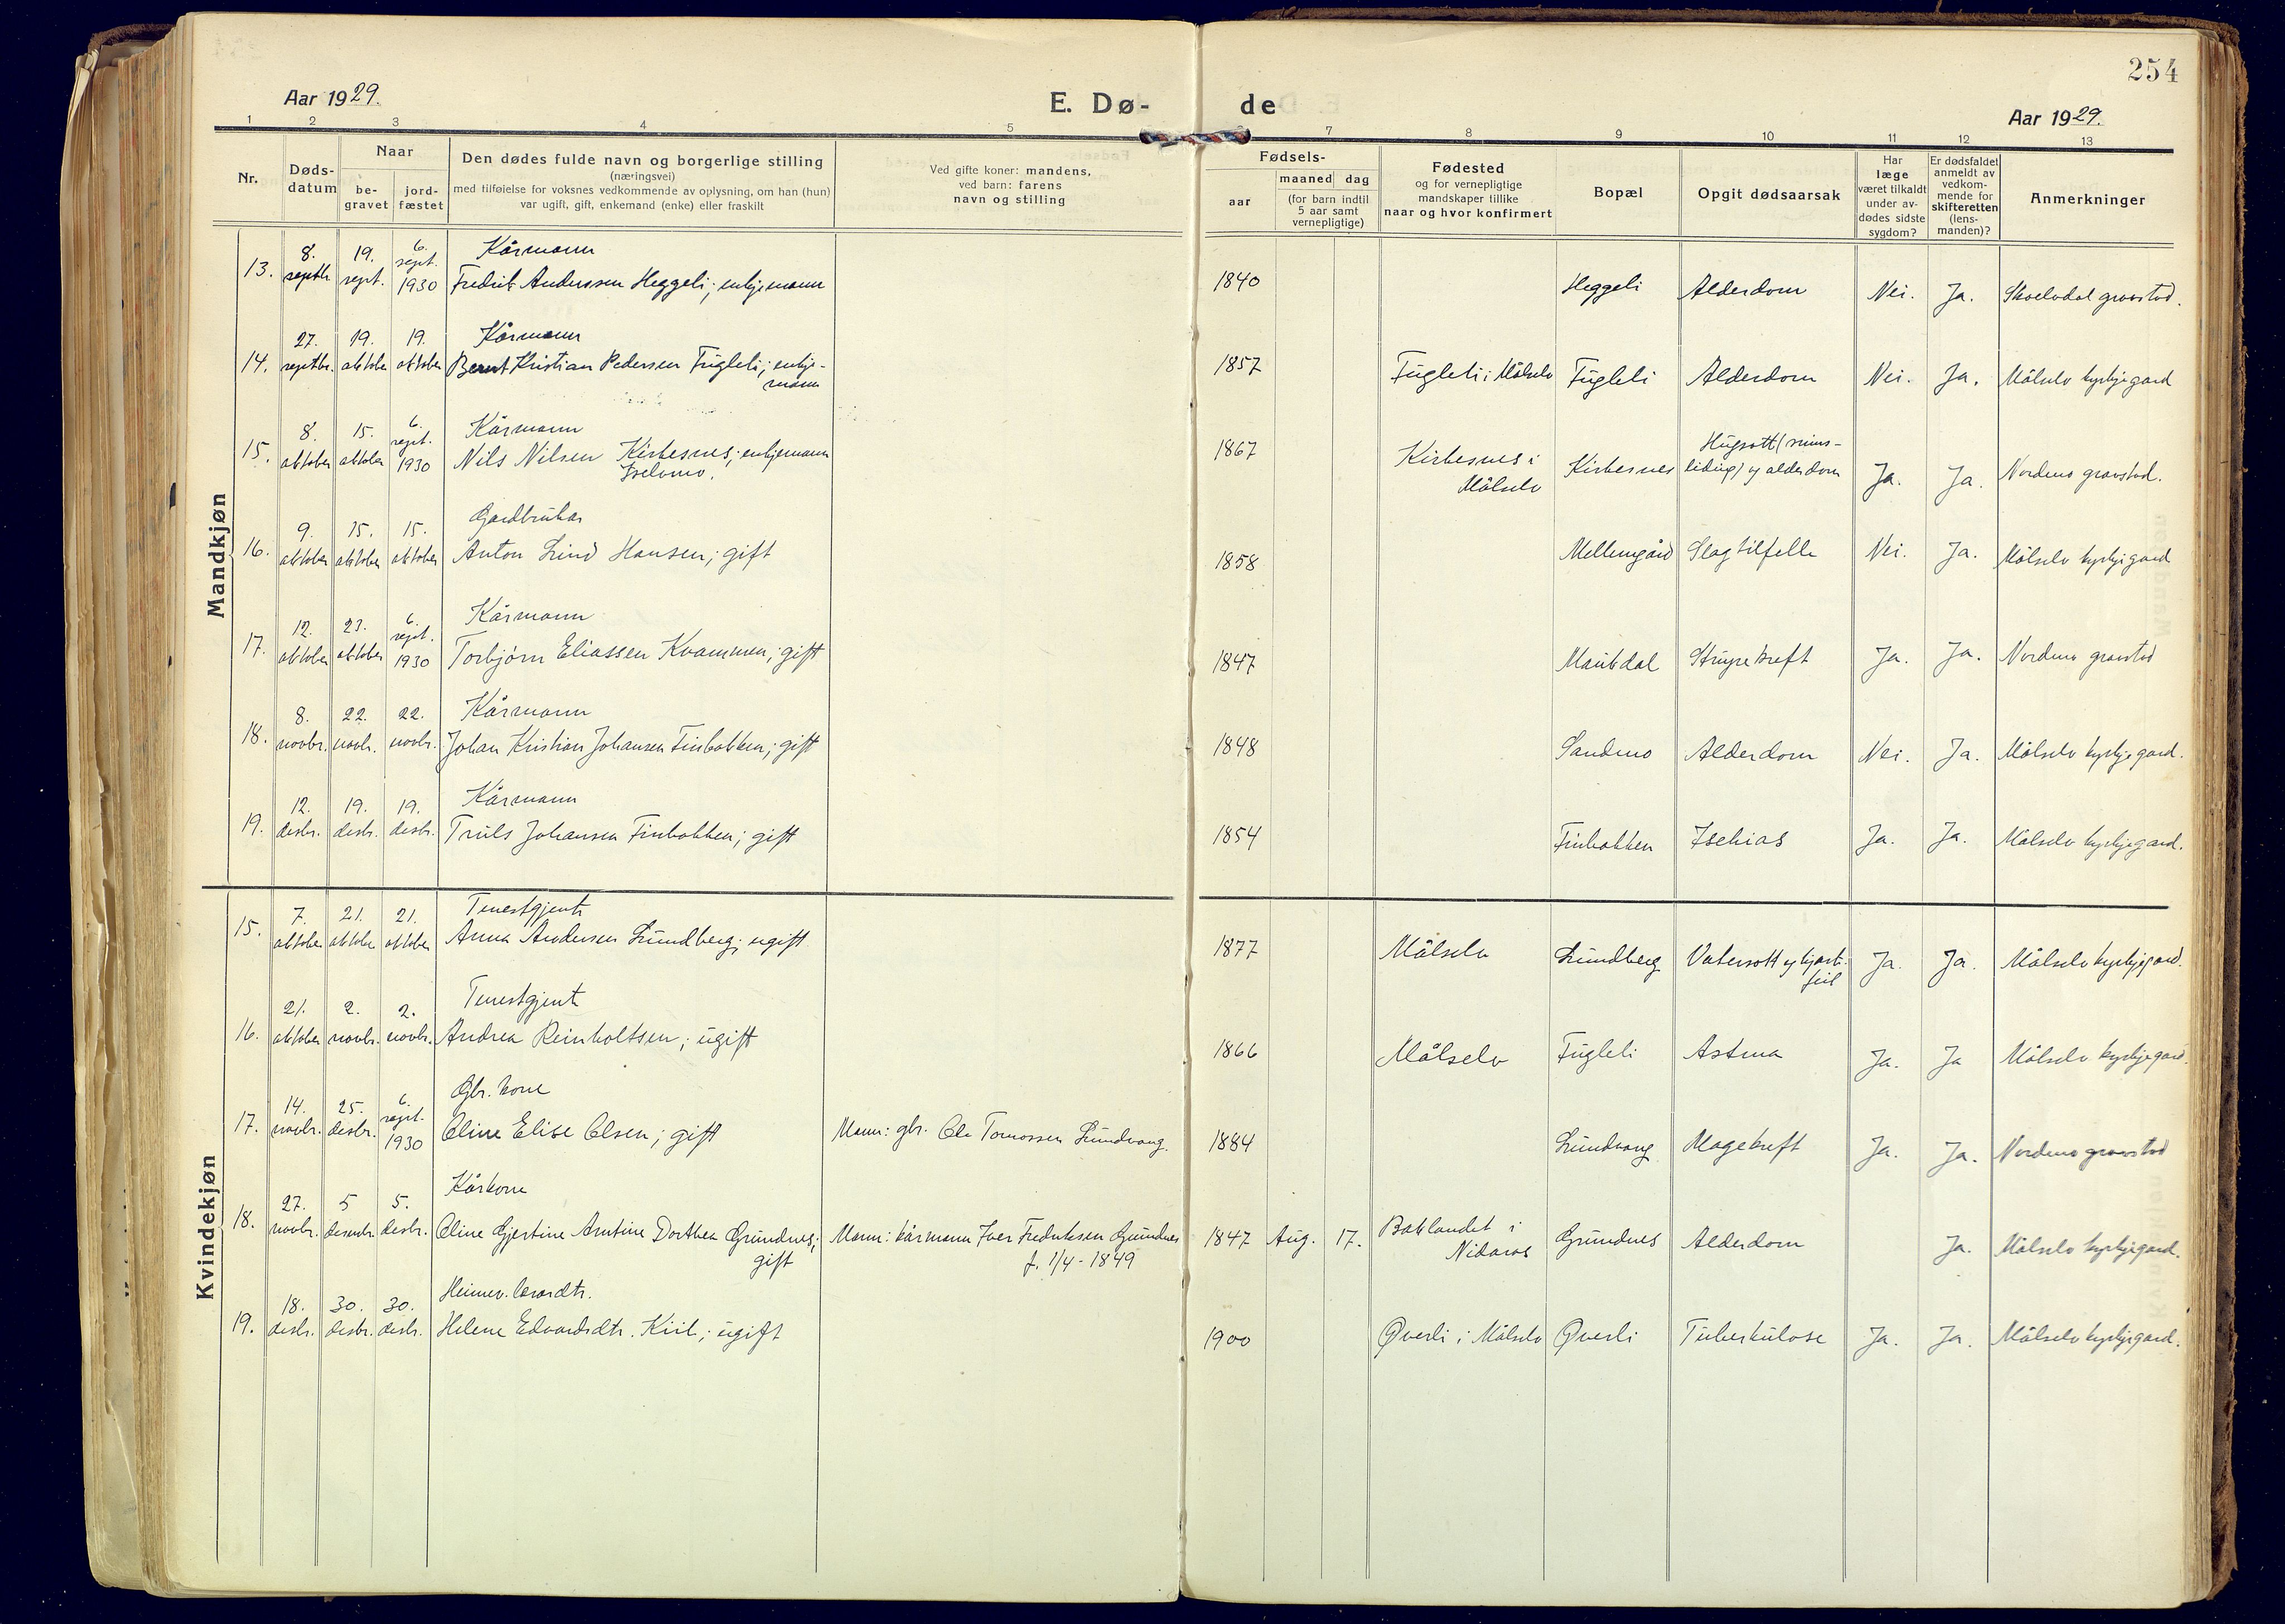 254
Aar 1929.
E. Dø-
de
Aar 1929.
1 2 3 4 5 7 8 9 10 11 12 13
Nr.
Døds-
datum
Naar
be-
gravet
jord-
fæstet
Den dødes fulde navn og borgerlige stilling
(næringsvei)
med tilføielse for voksnes vedkommende av oplysning, om han (hun)
var ugift, gift, enkemand (enke) eller fraskilt
Ved gifte koner: mandens,
ved barn: farens
navn og stilling
Fødsels-
aar
maaned dag
(for barn indtil
5 aar samt
vernepligtige)
Fødested
og for vernepligtige
mandskaper tillike
naar og hvor konfirmert
Bopæl
Opgit dødsaarsak
Har
læge
været tilkaldt
under av-
dødes sidste
sygdom?
Er dødsfaldet
anmeldt av
vedkom-
mende for
skifteretten
(lens-
manden)?
Anmerkninger
Mandkjøn
13. 8. septbr. 19. sept. 6. sept. 1930 Kårmann
Fredrik Anderssen Heggeli; enkjemann 1840 Heggeli Alderdom Nei. Ja. gravstad.
14. 27. septbr. 19. oktober 19. oktober Kårmann
Bernt Kristian Pedersen Fugleli; enkje-
mann 1857 Fugleli i Målselv Fugleli Alderdom Nei. Ja. Målselv kyrkjegard
15. 8. oktober 15. oktober 6. sept. 1930 Kårmann
Nils Nilsen Kirkesnes; enkjemann
Iselvmo. 1867 Kirkesnes i
Målselv Kirkesnes Hugsott (sinns-
liding) og alderdom Ja. Ja. Nordmo gravstad.
16. 9. oktober 15. oktober 15. oktober Gardbrukar
Anton Lind Hansen; gift 1858 Mellemgård Slagtilfelle Nei. Ja. Målselv kyrkjegard
17. 12. oktober 23. oktober 6. sept. 1930 Kårmann
Torbjørn Eliassen Kvammen; gift 1847 Maukdal Strupekreft Ja. Ja. Nordmo gravstad
18. 8. novbr. 22. novbr. 22. novbr. Kårmann
Johan Kristian Johansen Finbakken; gift 1848 Sandmo Alderdom Nei. Ja. Målselv kyrkjegard.
19. 12. desbr. 19. desbr. 19. desbr. Kårmann
Truls Johansen Finbakken; gift 1854 Finbakken Ischias Ja. Ja. Målselv kyrkjegard.
Kvindekjøn
15. 7. oktober 21. oktober 21. oktober Tenestgjente
Anna Andersen Lundberg; ugift 1877 Målselv Lundberg Vatersott og hjarte-
feil Ja. Ja. Målselv kyrkjegard.
16. 21. oktober 2. novbr. 2. novbr. Tenestgjente
Andrea Reinholtsen; ugift 1866 Målselv Fugleli Astma Ja. Ja Målselv kyrkjegard.
17. 14. novbr. 25. desbr. 6. sept. 1930 Gbr. kone
Oline Elise Olsen; gift Mann: gbr. Ole Tomassen Lundvang. 1884 Lundvang Magekreft Ja. Ja. Nordmo gravstad
18. 27. novbr. 5 desembr. 5. desbr. Kårkone
Oline Gjertine Arntine Dorthea Grundnes;
gift Mann: kårmann Iver Fredriksen Grundnes
f. 1/4 - 1849 1847 Aug. 17. Baklandet i
Nidaros Grundnes Alderdom Ja. Målselv kyrkjegard.
19. 18. desbr. 30. desbr. 30. desbr. Heimev.
Helene Edvardsdtr. Kiil; ugift 1900 Øverli i Målselv Øverli Tuberkulose Ja. Ja. Målselv kyrkjegard.